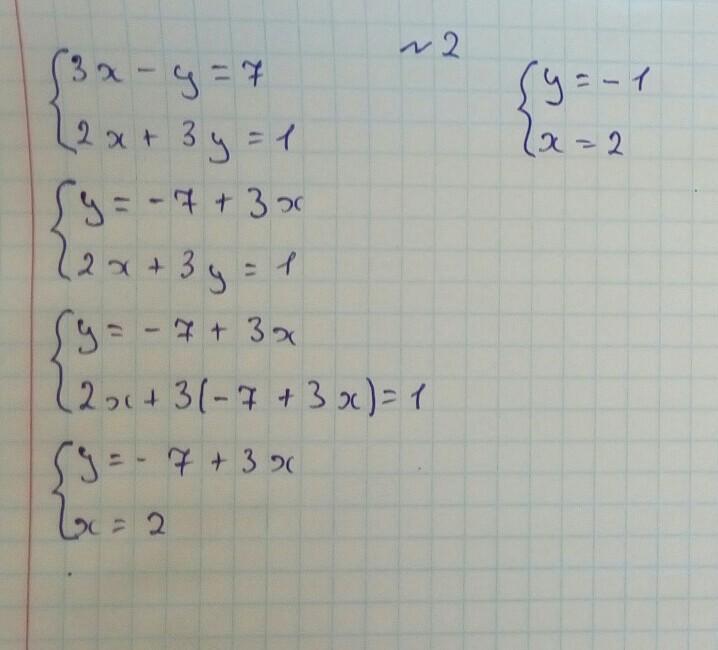 ~ 2
{3x - y = 7
{2x + 3y = 1
{y = -7 + 3x
{2x + 3y = 1
{y = -7 + 3x
{2x + 3(-7 + 3x) = 1
{y = -7 + 3x
{x = 2
{y = -1
{x = 2